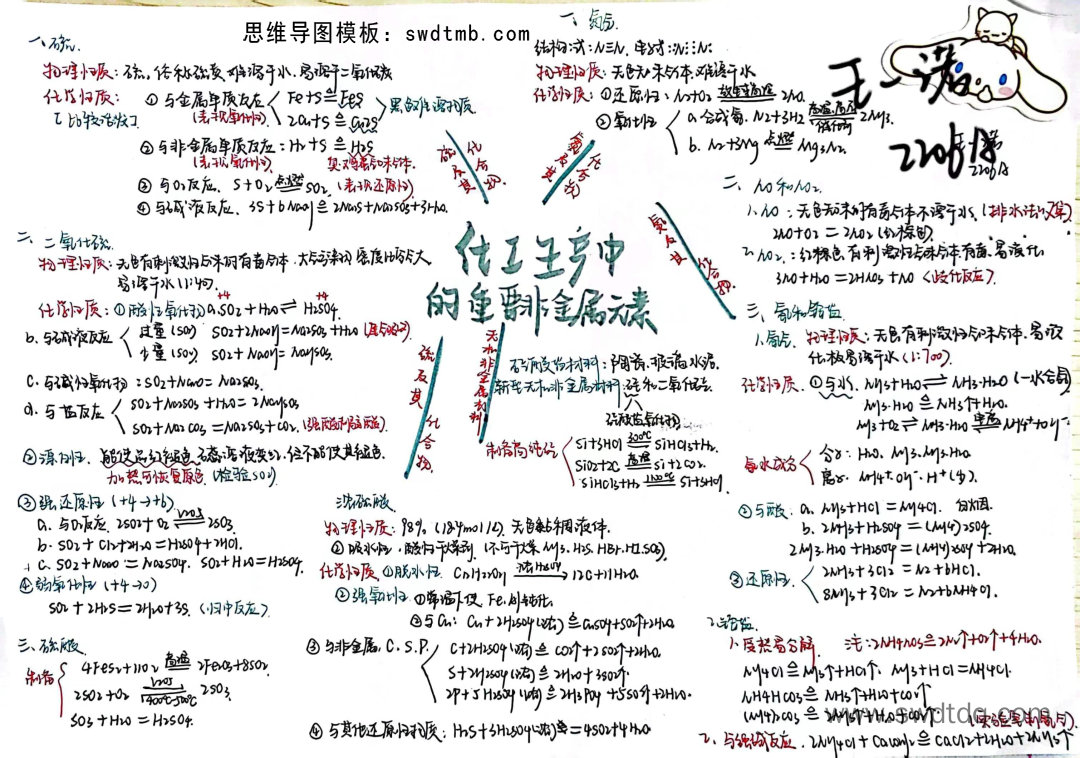 思维导图模板：swdtmb.com
化工生产中
的重要非金属元素
一、硫
物理性质：硫，俗称硫黄，难溶于水，易溶于二氧化碳
化学性质：
①与金属单质反应
(表现氧化性)
Fe+S≜FeS
2Cu+S≜Cu2S
黑色难溶物质
②与非金属单质反应：H2+S≜H2S
(表现氧化性)
③与O2反应．S+O2 点燃 SO2．(表现还原性)
④与碱液反应．3S+6NaOH≜2Na2S+Na2SO3+3H2O．
二、二氧化硫
物理性质：无色有刺激性气味的有毒气体．大气污染物 密度比空气大
易溶于水 (1:40)．
化学性质：①酸性氧化物 a. SO2+H2O⇌H2SO3．
+4
+4
b. 与碱液反应
过量(SO2)
少量(SO2)
SO2+2NaOH=Na2SO3+H2O
SO2+NaOH=NaHSO3．
c. 与碱性氧化物：SO2+Na2O=Na2SO3．
d. 与盐反应
SO2+Na2SO3+H2O=2NaHSO3
SO2+Na2CO3=Na2SO3+CO2．(强酸制弱酸)
②漂白性．能使品红褪色
加热可恢复原色．(检验SO2)
③强还原性 (+4→+6)
a. 与O2反应 2SO2+O2 V2O5 ⇌ 2SO3
b. SO2+Cl2+2H2O=H2SO4+2HCl．
④弱氧化性 (+4→0)
SO2+2H2S=2H2O+3S．(归中反应)
三、硫酸
制备
4FeS2+11O2 高温 2Fe2O3+8SO2．
2SO2+O2 V2O5 400℃-500℃ 2SO3．
SO3+H2O=H2SO4．
浓硫酸
物理性质：98% (18.4mol/L)．无色黏稠液体．
②吸水性，酸性干燥剂．(不可干燥 NH3. H2S. HBr. HI. SO3)
化学性质 ①脱水性 C12H22O11 浓H2SO4 → 12C+11H2O．
②强氧化性 ①常温下使 Fe. Al 钝化．
②与Cu：Cu+2H2SO4(浓)≜CuSO4+SO2↑+2H2O
③与非金属. C. S. P
C+2H2SO4(浓)≜CO2↑+2SO2↑+2H2O．
S+2H2SO4(浓)≜2H2O+3SO2↑．
2P+5H2SO4(浓)≜2H3PO4+5SO2↑+2H2O．
④与其他还原性物质：H2S+3H2SO4(浓)≜=4SO2+4H2O
硫及其化合物
氮及其化合物
氮及其化合物
硅及其化合物
无机非金属材料
硅酸盐材料：陶瓷．玻璃 水泥．
新型无机非金属材料：硅和二氧化硅．
制备高纯硅
Si+3HCl 300℃ SiHCl3+H2．
SiO2+2C 高温 Si+2CO2．
SiHCl3+H2 1100℃ Si+3HCl
一、氮气
结构式：N≡N．电子式：:N⋮⋮N:
物理性质：无色无味气体，难溶于水
化学性质：①还原性：N2+O2 放电或高温 2NO．
②氧化性
a. 合成氨．N2+3H2 高温.高压 催化剂 2NH3．
b. N2+3Mg 点燃 Mg3N2．
王一诺
二、NO和NO2．
1. NO：无色无味的有毒气体 不溶于水．(排水法收集)
2NO+O2=2NO2 (红棕色)．
2. NO2：红棕色 有刺激性气味气体 有毒．易液化
3NO2+H2O=2HNO3+NO (歧化反应)
三、氨和铵盐
1. 氨气 物理性质：无色有刺激性气味气体．易液
化 极易溶于水 (1:700)．
化学性质．①与水．NH3+H2O⇌NH3·H2O (一水合氨)
NH3·H2O≜NH3↑+H2O．
氨水成分
分子：H2O. NH3. NH3·H2O
离子：NH4+. OH-. H+(少)．
②与酸．a. NH3+HCl=NH4Cl．白烟．
b. 2NH3+H2SO4=(NH4)2SO4．
2NH3·H2O+H2SO4=(NH4)2SO4+2H2O．
③还原性．
2NH3+3Cl2=N2+6HCl．
8NH3+3Cl2=N2+6NH4Cl．
2. 铵盐
1. 受热易分解 注：2NH4NO3≜2N2↑+O2↑+4H2O．
NH4Cl≜NH3↑+HCl↑．NH3+HCl=NH4Cl．
NH4HCO3≜NH3↑+H2O+CO2↑
(NH4)2CO3≜2NH3↑+H2O+CO2↑
www.swdtdq.com
(实验室制氨气)
2. 与强碱反应．2NH4Cl+Ca(OH)2≜CaCl2+2H2O+2NH3↑